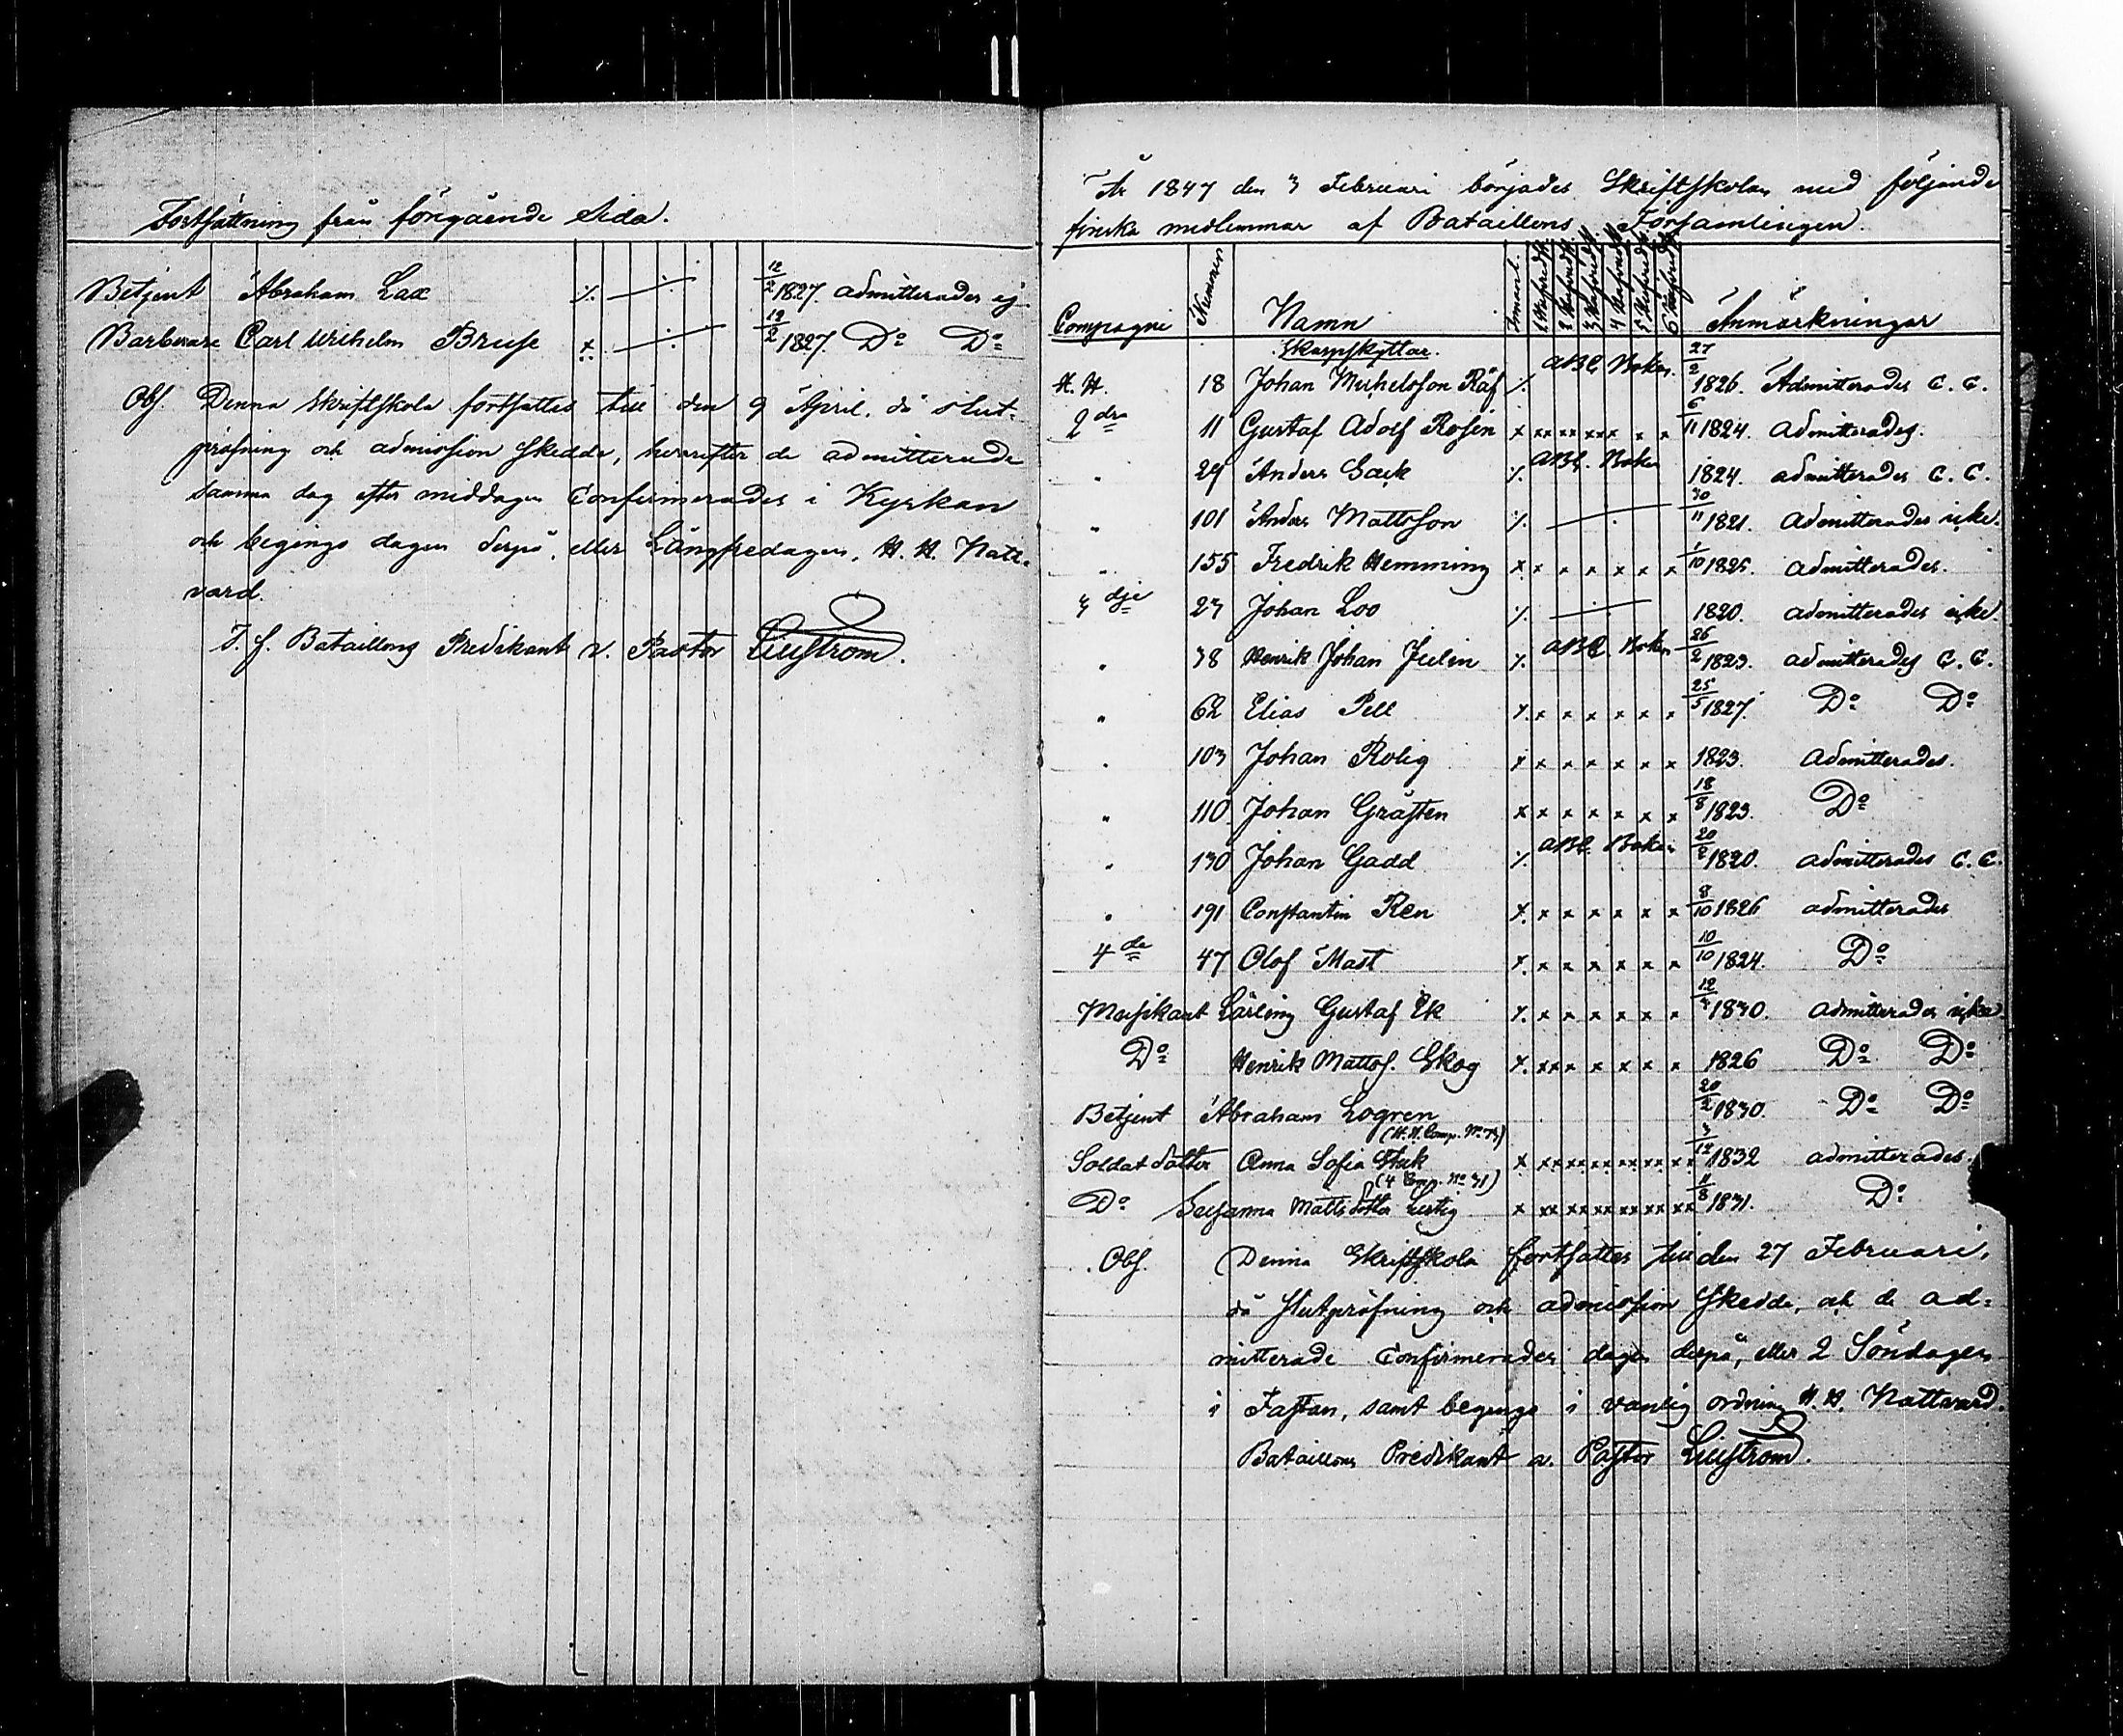 Fortsättning från föregående Sida.
Betjent Abraham Lax ·/. 12/2 1827. admitterades ej
Barberare Carl Wilhelm Bruse x 12/2 1827. Do Do
Obs. Denna Skriftskola fortsattes till den 9 April, då slut-
pröfning och admission skedde, hvarefter de admitterade
samma dag efter middagen Confirmerades i Kyrkan
och begingo dagen derpå, eller Långfredagen, H. H. Natt-
vard.
T. f. Bataillons Predikant v. Pastor Liljström.
År 1847 den 3 Februari börjades Skriftskolan med följande
finska medlemmar af Bataillons Församlingen.
Compagnie Nummer Namn Innanl. 1 2 3 4 5 6 Anmärkningar
Skarpskyttar.
H. H. 18 Johan Michelsson Räf ·/. ABC Boken. 27/2 1826. Admitterades C. C.
2dra 11 Gustaf Adolf Rosin x xx xx xx x x x 6/11 1824. Admitterades.
" 29 Anders Sack ·/. ABC. Boken 1824. admitterades C. C.
" 101 Anders Mattsson ·/. 30/11 1821. Admitterades icke.
" 155 Fredrik Hemming x x x x x x x 1/10 1825. Admitterades.
3dje 23 Johan Loo ·/. 1820. admitterades icke.
" 38 Henrik Johan Julin ·/. ABC Boken 26/2 1823. admitterades C. C.
" 62 Elias Pell ·/. x x x x x x 25/5 1827. Do Do
" 103 Johan Rolig x x x x x x x 1823. Admitterades.
" 110 Johan Gråsten x x x x x x x 18/8 1823. Do
" 130 Johan Gadd ·/. ABC. Boken 20/2 1820. admitterades C. C.
" 191 Constantin Ren x x x x x x x 8/10 1826 admitterades
4de 47 Olof Mast x x x x x x x 10/10 1824. Do
Musikant Lärling Gustaf Ek x x x x x x x 12/3 1830. admitterades icke
Do Henrik Mattss. Skog x xx x x x x x 1826 Do Do
Betjent Abraham Logren 20/2 1830. Do Do
(H. H. Comp. No 73)
Soldat dotter Anna Sofia Stuk x xx xx xx xx xx xx 3/12 1832 admitterades.
(4 Comp. No 31)
Do Susanna Mattsdotter Lustig x xx xx xx xx xx xx 11/8 1831. Do
Obs. Denna Skriftskola fortsattes till den 27 Februari,
då Slutpröfning och admission skedde, och de ad-
mitterade Confirmerades dagen derpå, eller 2 Söndagen
i Fastan, samt begingo i vanlig ordning H. H. Nattvard.
Bataillons Predikant v. Pastor Liljström.